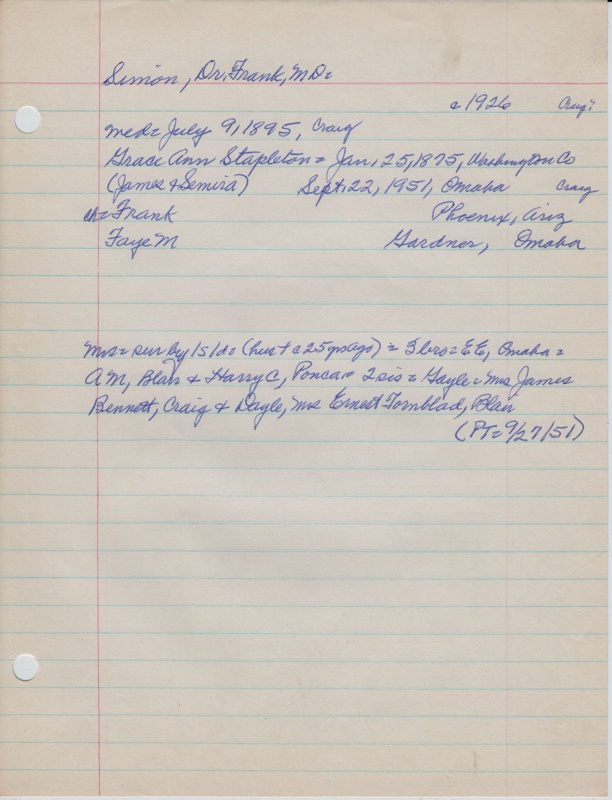 Simon, Dr. Frank, MD=
c 1926 Craig?
med= July 9, 1895, Craig
Grace Ann Stapleton = Jan. 25, 1875, Washington Co
(James & Semira) Sept. 22, 1951, Omaha Craig
ch= Frank Phoenix, Ariz
Faye M Gardner, Omaha
Mrs= sur by 1s 1d= (hus + c 25 yrs ago) = 3 bro= E E, Omaha =
A M, Blair & Harry C, Ponca = 2 sis = Gayle = Mrs James
Bennett, Craig & Dayle, Mrs Ernest Tornblad, Blair
(PT= 9/27/51)